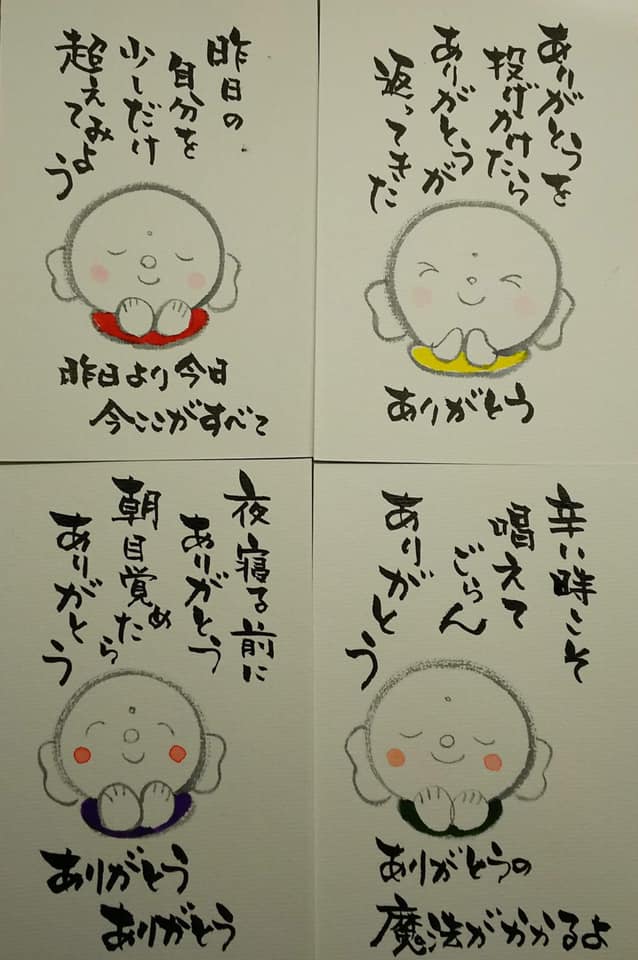 昨日の
自分を
少しだけ
超えてみよう
昨日より今日
今ここがすべて
ありがとうを
投げかけたら
ありがとうが
返ってきた
ありがとう
夜寝る前に
ありがとう
朝目覚めたら
ありがとう
ありがとう
ありがとう
辛い時こそ
唱えて
ごらん
ありがとう
ありがとうの
魔法がかかるよ